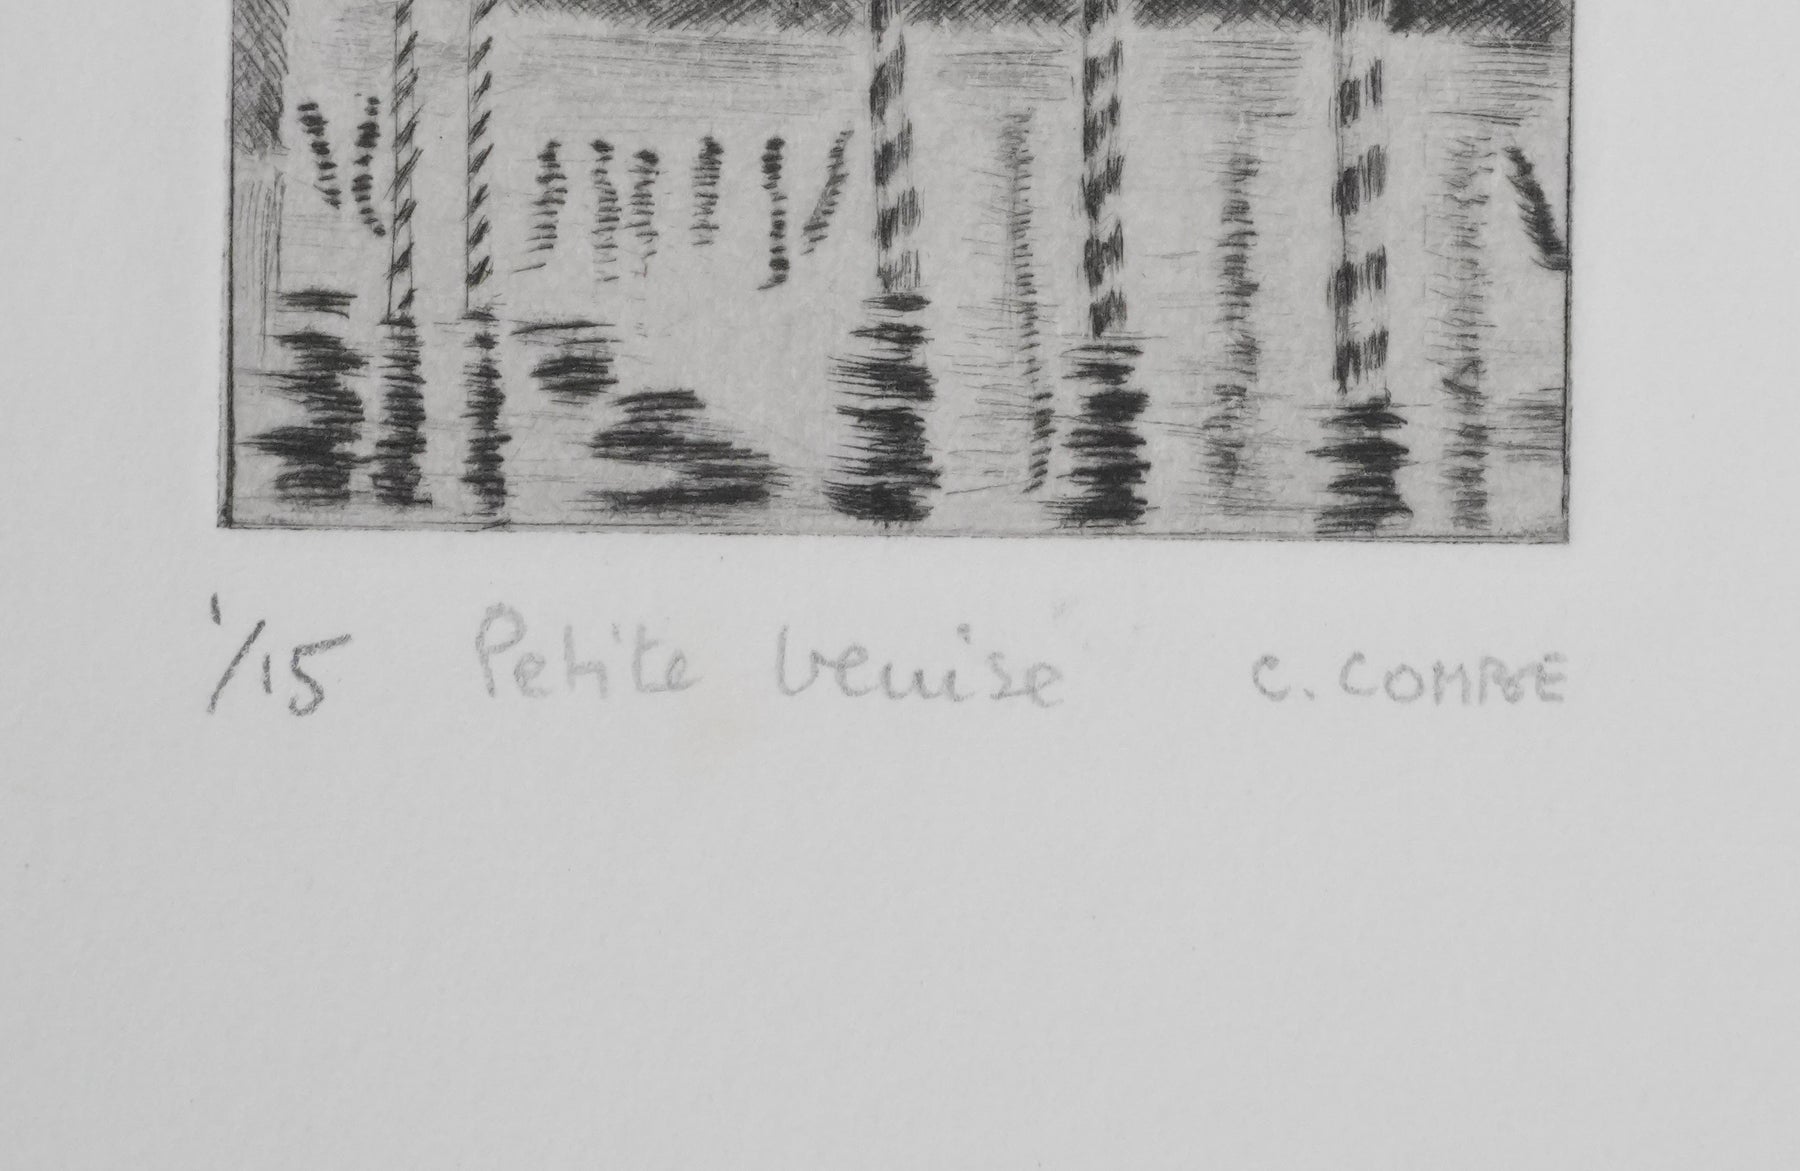 1/15 Petite Venise C. COMBE